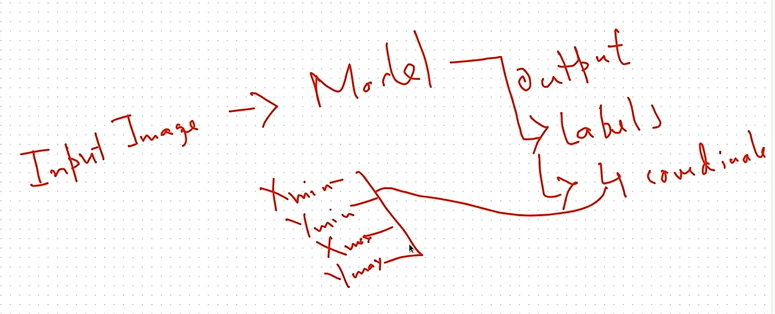 Input Image → Model
Output
Labels
4 coordinate
Xmin
Ymin
Xmax
Ymax